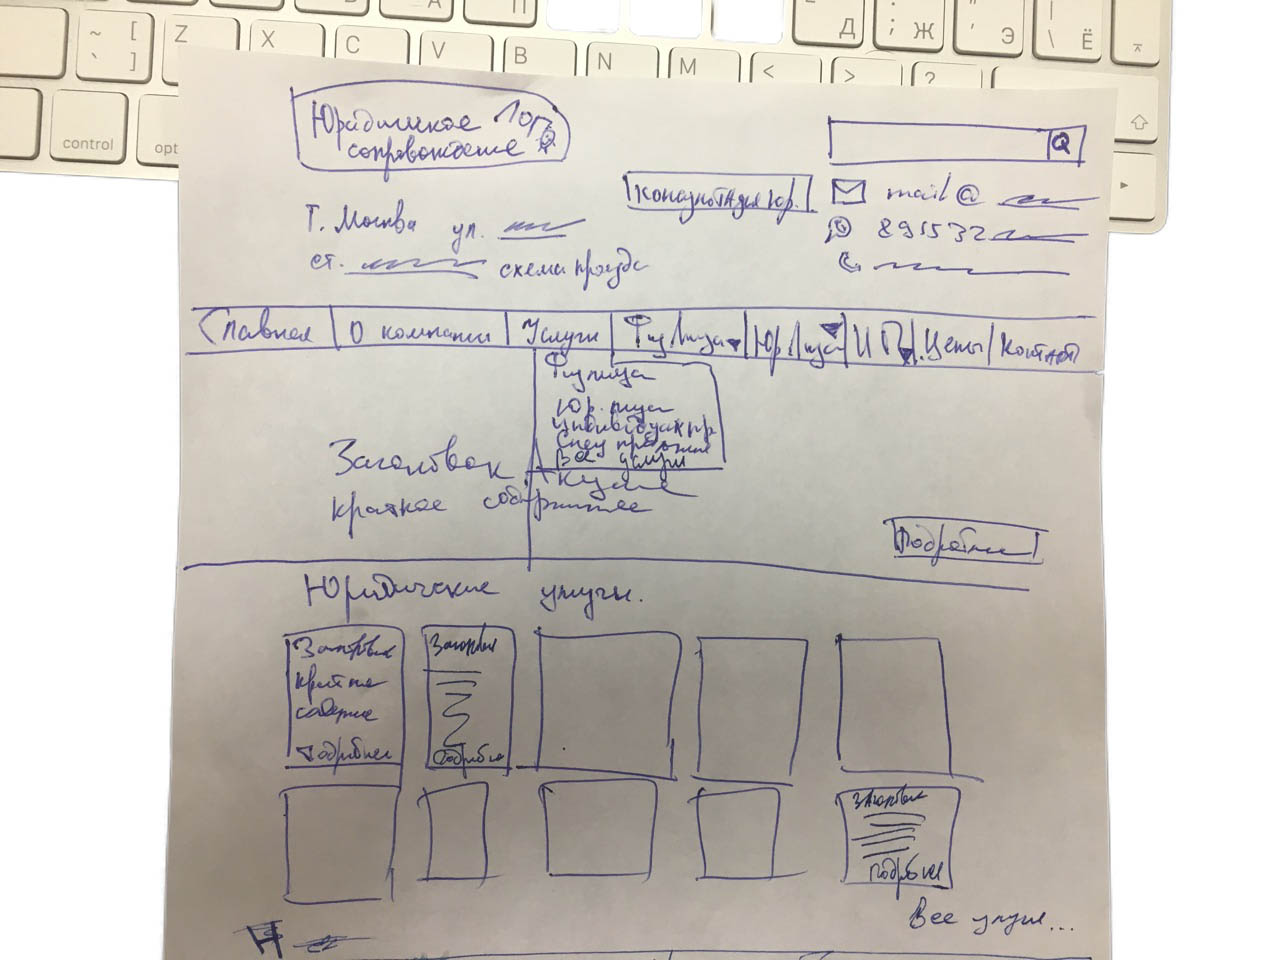 ~ [
` ]
Z
X
C
V
B
N
M
<
>
?
Д
; Ж
: 
" Э
'
| Ё
\
control
opt
Юридическое Лого
сопровождение
Q
Консультация Юр.
mail@
Г. Москва ул.
891532
ст. схема проезда
Главная | О компании | Услуги | Физ Лица | Юр. Лица | ИП | Цены | Контакт
Физ лица
Юр. лица
Спец предложение
Все услуги
Заголовок
краткое содержание
Подробнее
Юридические услуги.
Заголовок
кратко
содержание
Подробнее
Заголовок
Подробнее
Заголовок
подробнее
Все услуги...